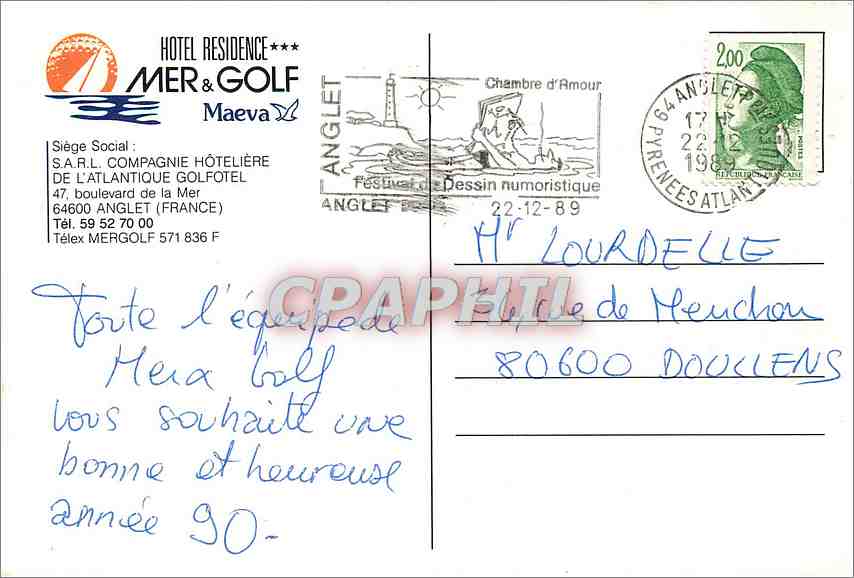 HOTEL RESIDENCE ***
MER & GOLF
Maeva
Siège Social :
S.A.R.L. COMPAGNIE HÔTELIÈRE
DE L'ATLANTIQUE GOLFOTEL
47, boulevard de la Mer
64600 ANGLET (FRANCE)
Tél. 59 52 70 00
Télex MERGOLF 571 836 F
Toute l'équipe de
Mer & Golf
vous souhaite une
bonne et heureuse
année 90-
ANGLET
Chambre d'Amour
Festival de Dessin humoristique
ANGLET
22-12-89
64 ANGLET PPAL
17 H
22-12
1989
PYRENEES ATLANTIQUES
2,00
POSTES
REPUBLIQUE FRANÇAISE
Mr LOURDELLE
rue de Menchon
80600 DOULLENS
CPAPHIL